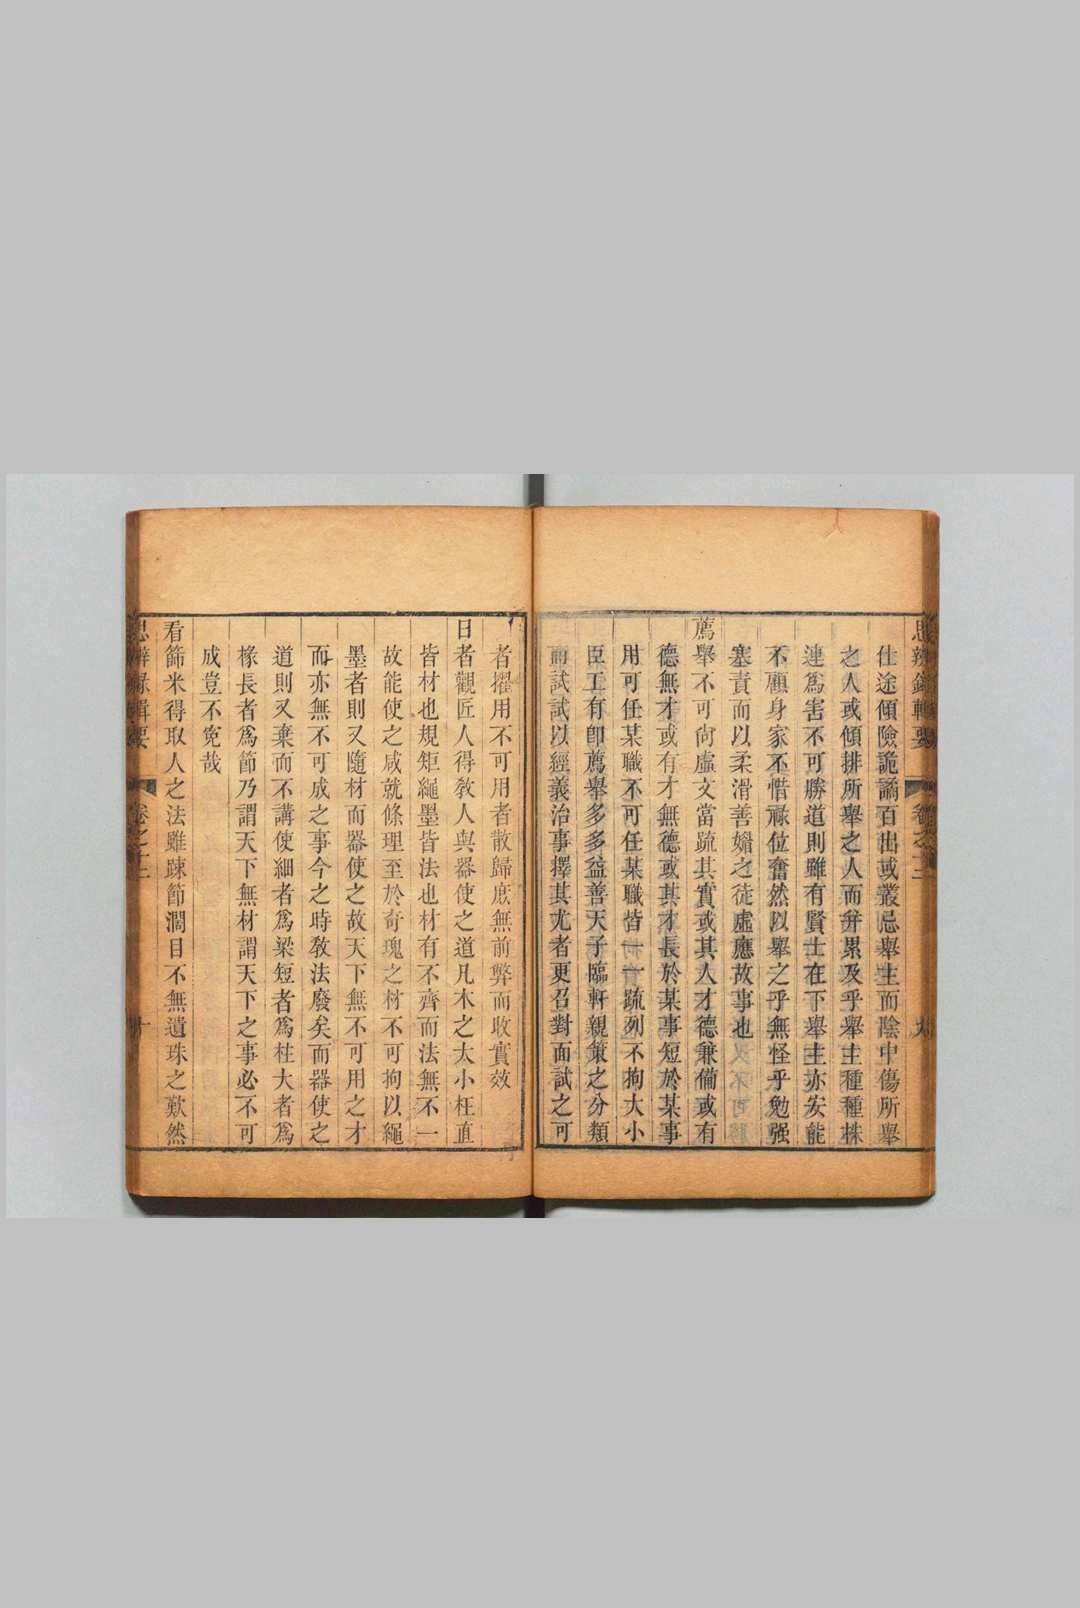 思辨錄輯要
卷之十二
仕途傾險詭譎百出或叢忌舉主而陰中傷所舉
之人或傾排所舉之人而幷累及乎舉主種種株
連爲害不可勝道則雖有賢士在下舉主亦安能
不顧身家不惜祿位奮然以舉之乎無怪乎勉强
塞責而以柔滑善媚之徒虛應故事也
薦舉不可尙虛文當疏其實或其人才德兼備或有
德無才或有才無德或其才長於某事短於某事
用可任某職不可任某職皆一一疏列不拘大小
臣工有卽薦舉多多益善天子臨軒親策之分類
而試試以經義治事擇其尤者更召對面試之可
者擢用不可用者散歸庶無前弊而收實效
日者觀匠人得敎人與器使之道凡木之大小枉直
皆材也規矩繩墨皆法也材有不齊而法無不一
故能使之咸就條理至於奇瑰之材不可拘以繩
墨者則又隨材而器使之故天下無不可用之才
而亦無不可成之事今之時敎法廢矣而器使之
道則又棄而不講使細者爲梁短者爲柱大者爲
椽長者爲節乃謂天下無材謂天下之事必不可
成豈不寃哉
看篩米得取人之法雖疎節濶目不無遺珠之歎然
思辨錄輯要
卷之十二
十